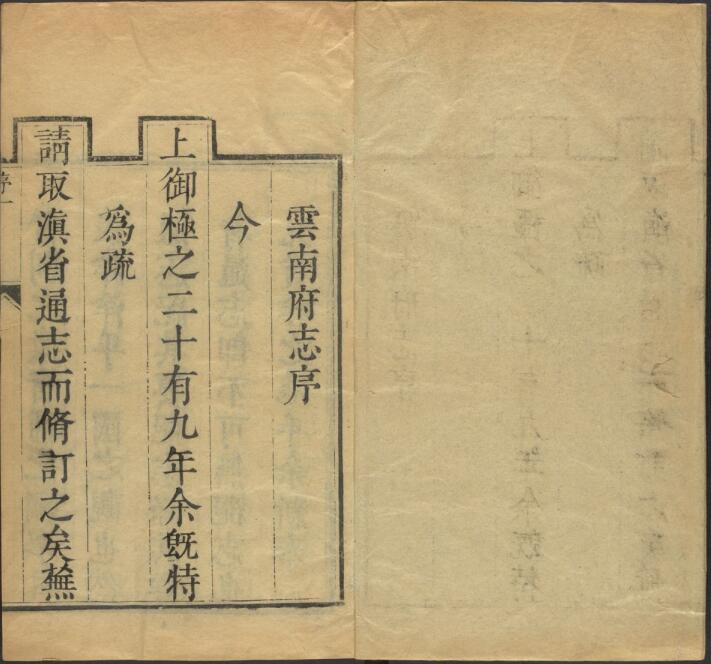 雲南府志序
今
上御極之二十有九年余既特
爲疏
請取滇省通志而脩訂之矣蕪
序一